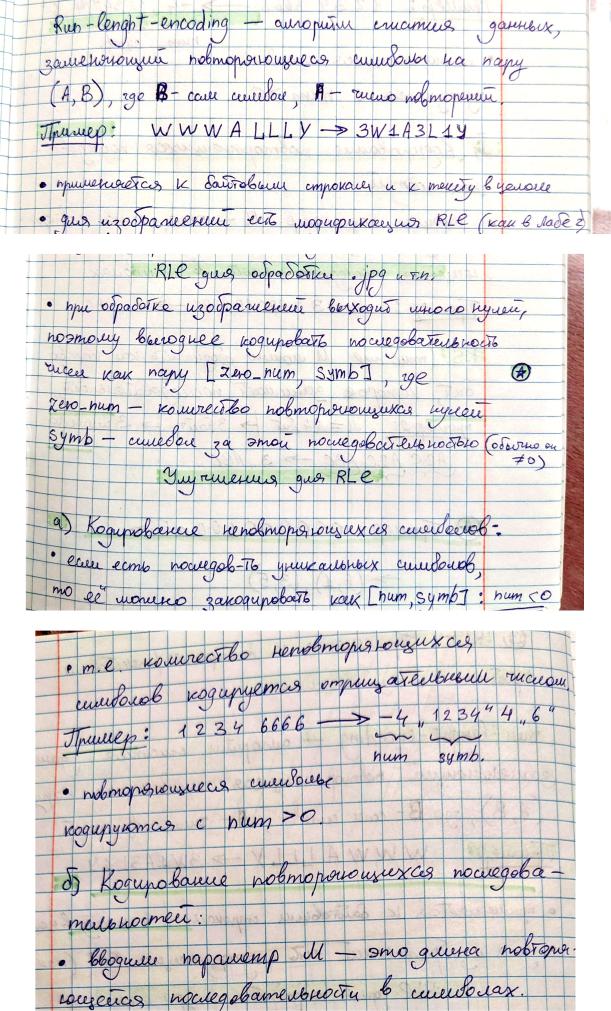 Run-lenght-encoding — алгоритм сжатия данных,
заменяющий повторяющиеся символы на пару
(A, B), где B - сам символ, A - число повторений.
Пример: W W W A L L L Y → 3W1A3L1Y
• применяется к байтовым строкам и к тексту в целом
• для изображений есть модификация RLE (как в лабе 2)
RLE для обработки .jpg и т.п.
• при обработке изображений выходит много нулей,
поэтому выгоднее кодировать последовательность
чисел как пару [zero_num, symb], где
zero_num — количество повторяющихся нулей
symb — символ за этой последовательностью (обычно он
≠0)
Улучшения для RLE
а) Кодирование неповторяющихся символов:
• если есть последов-ть уникальных символов,
то её можно закодировать как [num, symb] : num < 0
• т.е количество неповторяющихся
символов кодируется отрицательным числом.
Пример: 1 2 3 4 6666 → -4 „1234“ 4 „6“
num symb.
• повторяющиеся символы
кодируются с num > 0.
б) Кодирование повторяющихся последова-
тельностей:
• вводим параметр M — это длина повторя-
ющейся последовательности в символах.